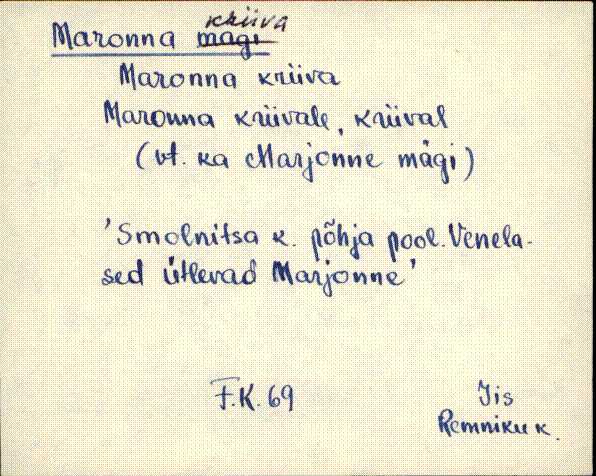 Maronna mägi kriiva
Maronna kriiva
Maronna kriivale, kriival
(vt. ka Marjonne mägi)
'Smolnitsa k. põhja pool. Venela-
sed ütlevad Marjonne'
F.K. 69
Jis
Remniku k.